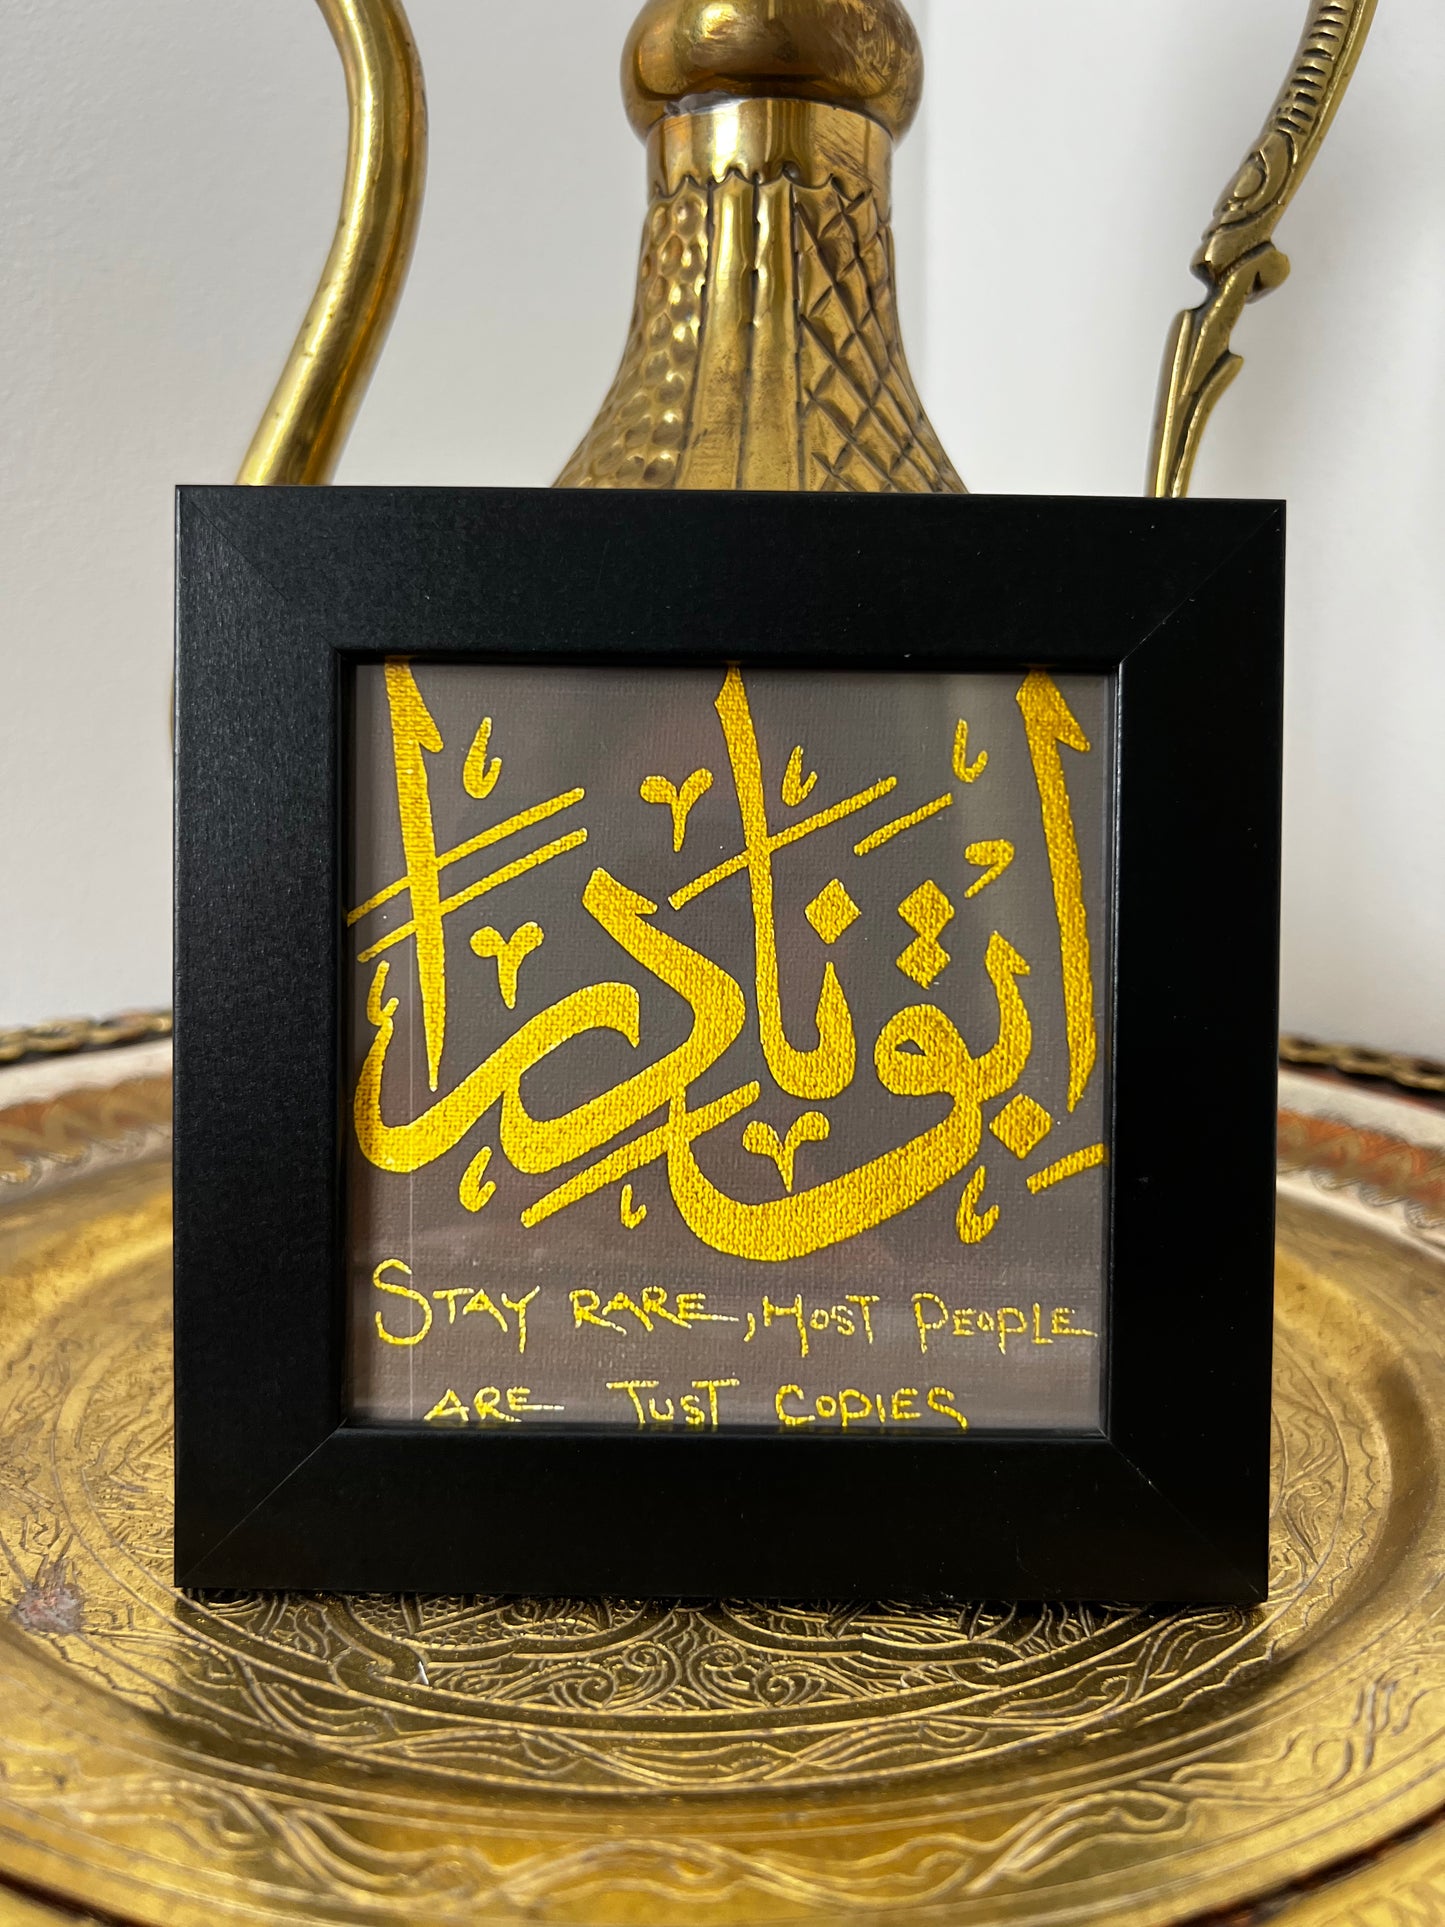 اِبقَ نَادِراً
STAY RARE, MOST PEOPLE
ARE JUST COPIES